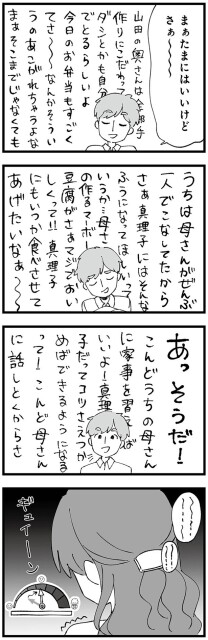 まぁたまにはいいけど
さぁ〜〜
山田の奥さんは全部手
作りにこだわっ
ダシとかも自分
でとるらしいよ
今日のお弁当もすごく
てさ〜〜なんかそうい
うのあこがれちゃうよな
まぁそこまでじゃなくても
うちは母さんがぜんぶ
一人でこなしてたから
さぁ真理子にはそんな
ふうになってほ
いうか…母さ
の作るマーボ
豆腐がさぁマジでおい
しくって!!真理子
にもいつか食べさせて
あげたいなぁ〜〜
あっそうだ!
こんどうちの母さん
に家事を習えば
いいよー!真理
子だってコツさえつか
めばできるようになる
って!こんど母さん
に話しとくからさ
ギュイーン